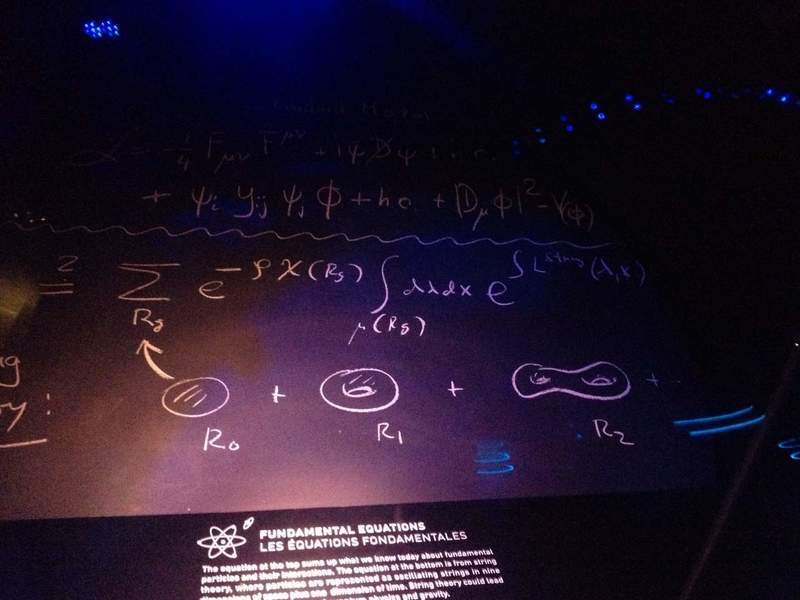 Standard Model
L = -1/4 F_μν F^μν + iψ D̸ ψ + h.c.
+ ψ_i y_ij ψ_j ϕ + h.c. + |D_μ ϕ|² - V(ϕ)
Z = Σ_{R_g} e^{-ϕ χ(R_g)} ∫_{μ(R_g)} dλdx e^{∫ L^{string}(λ,x)}
R₀ + R₁ + R₂ + ..
FUNDAMENTAL EQUATIONS
LES ÉQUATIONS FONDAMENTALES
The equation at the top sums up what we know today about fundamental
particles and their interactions. The equation at the bottom is from string
theory, where particles are represented as oscillating strings in nine
dimensions of space plus one dimension of time. String theory could lead
physics and gravity.